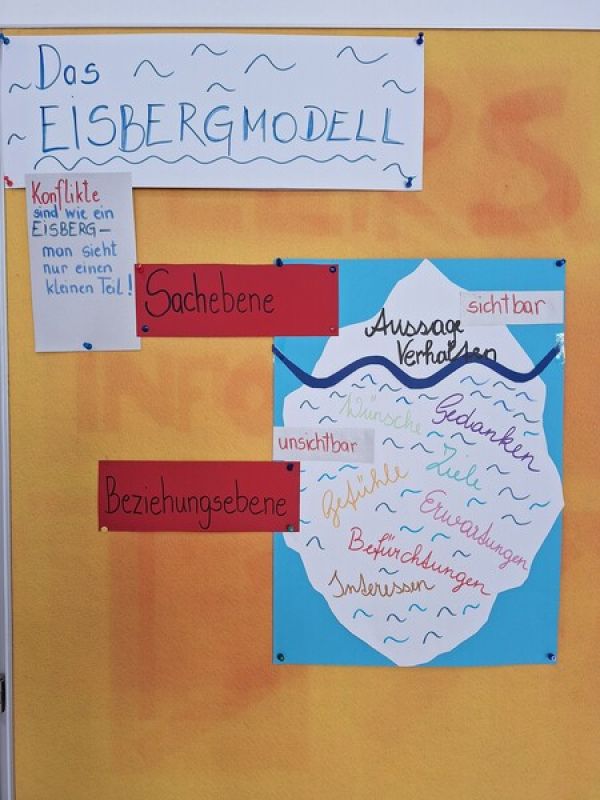 Das
EISBERGMODELL
Konflikte
sind wie ein
EISBERG –
man sieht
nur einen
kleinen Teil!
Sachebene
sichtbar
Aussage
Verhalten
Wünsche
Gedanken
unsichtbar
Ziele
Gefühle
Beziehungsebene
Erwartungen
Befürchtungen
Interessen